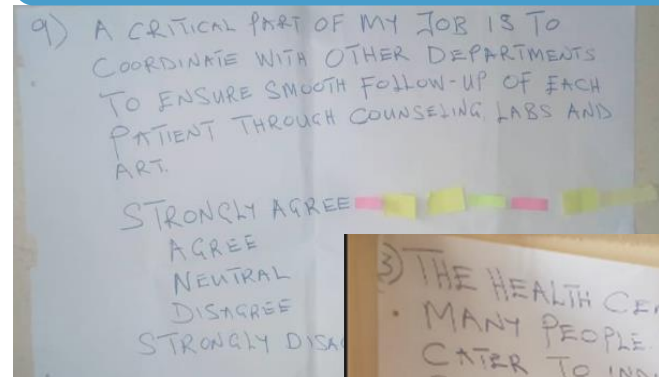 9) A CRITICAL PART OF MY JOB IS TO
COORDINATE WITH OTHER DEPARTMENTS
TO ENSURE SMOOTH FOLLOW-UP OF EACH
PATIENT THROUGH COUNSELING, LABS AND
ART.
STRONGLY AGREE
AGREE
NEUTRAL
DISAGREE
STRONGLY DISA
3) THE HEALTH CE
• MANY PEOPLE.
CATER TO IND